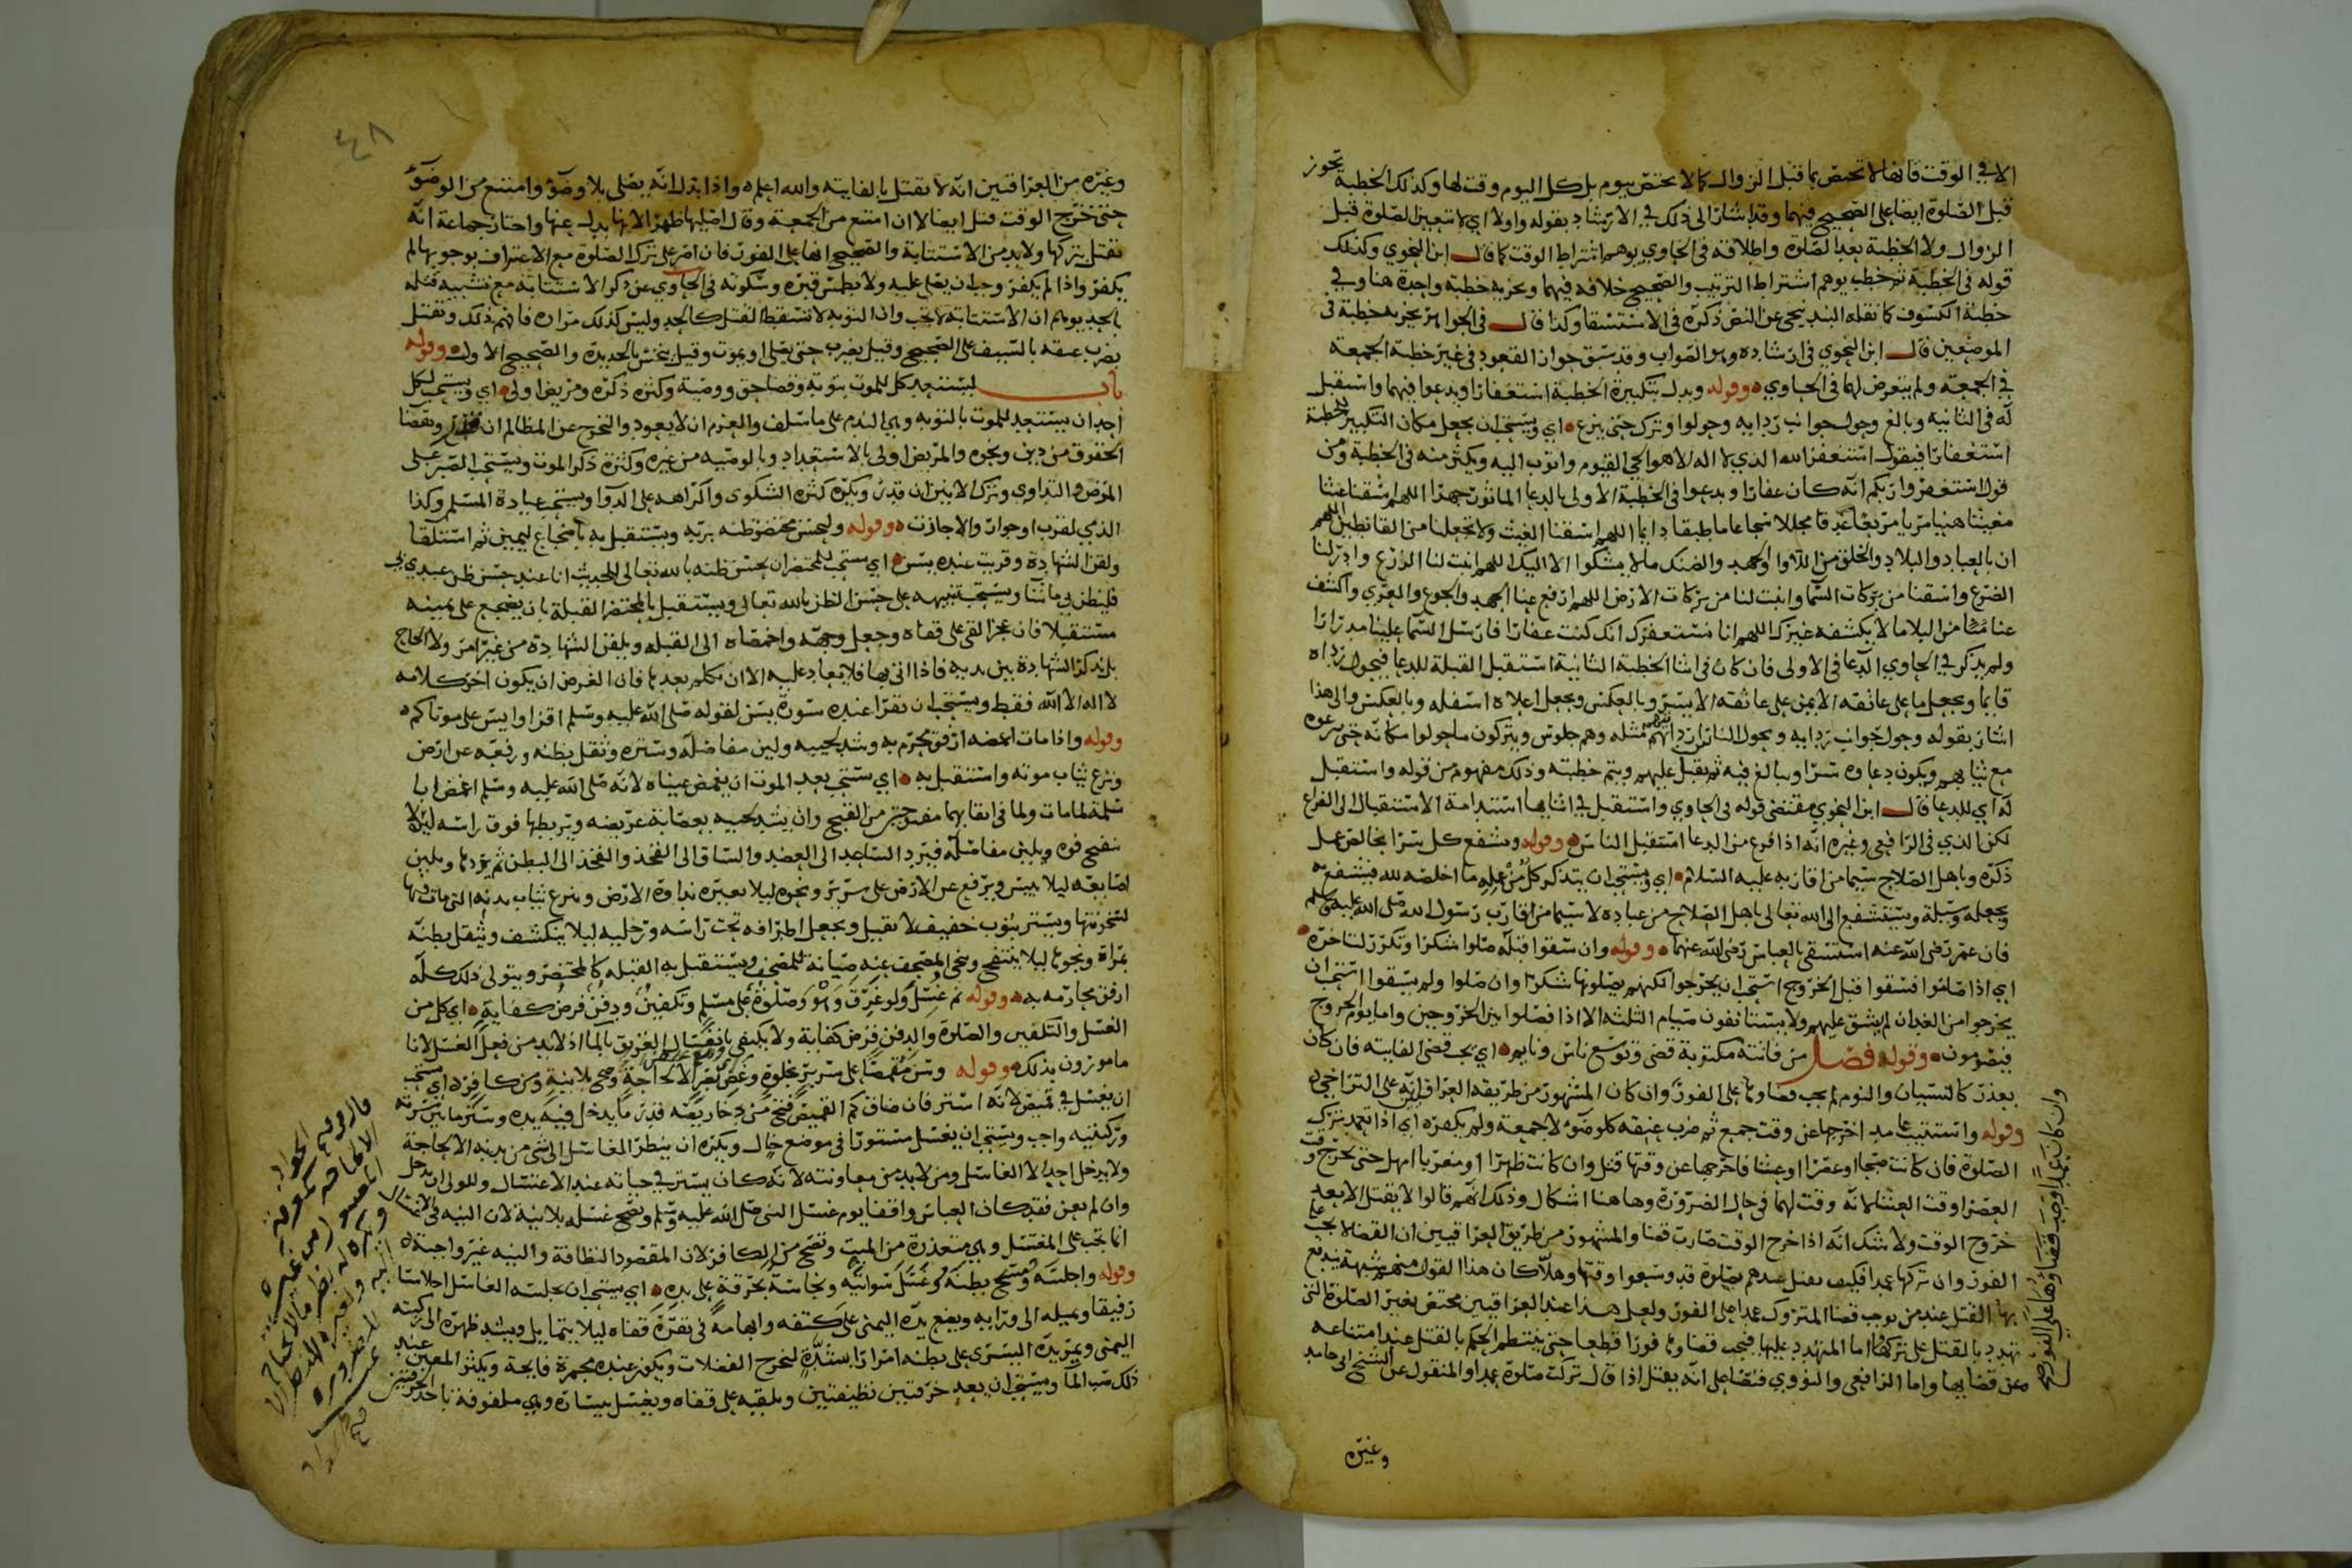 الا في الوقت فانها لا تختص بما قبل الزوال كما لا يختص بيوم بل كل اليوم وقت لها وكذلك الخطبة تجوز
قبل الصلوة ايضا على الصحيح فيهما وقد اشار الى ذلك في الارشاد بقوله واولا اي لا تتعين الصلوة قبل
الزوال ولا الخطبة بعد الصلوة واطلاقه في الحاوي يوهم اشتراط الوقت كما قال ابن النحوي وكذلك
قوله في الخطبة ثم خطب يوهم اشتراط الترتيب والصحيح خلافه فيهما ويجزيه خطبة واحدة هنا وفي
خطبة الكسوف كما نقله البندنيجي عن النص ذكره في الاستسقا وكذا قال في الجواهر يجزيه خطبة في
الموضعين قال ابن النحوي في ارشاده وهو الصواب وقد سبق جواز القعود في غير خطبة الجمعة
في الجمعة ولم يتعرض لها في الحاوي وقوله وبدل تكبيرة الخطبة استغفارا ويدعوا فيهما واستقبل
له في الثانيه وبالغ وحول جوانب ردايه وحولوا وترك حتى ينزع اي ويستحب ان يجعل مكان التكبير للخطبة
استغفارا فيقول استغفر الله الذي لا اله الا هو الحي القيوم واتوب اليه ويكثر منه في الخطبة ومن
قول استغفروا ربكم انه كان غفارا ويدعوا في الخطبة الاولى بالدعا الماثور جهرا اللهم اسقنا غيثا
مغيثا هنيا مريا مريعا غدقا مجللا سحا عاما طبقا دايما اللهم اسقنا الغيث ولا تجعلنا من القانطين اللهم
ان بالعباد والبلاد والخلق من اللاوا والجهد والضنك ما لا يشكوا الا اليك اللهم انبت لنا الزرع وادر لنا
الضرع واسقنا من بركات السما وانبت لنا من بركات الارض اللهم ارفع عنا الجهد والجوع والعري واكشف
عنا من البلا ما لا يكشفه غيرك اللهم انا نستغفرك انك كنت غفارا فارسل السما علينا مدرارا
ولم يذكر في الحاوي الدعا في الاولى فان كان في اثنا الخطبة الثانية استقبل القبلة للدعا فيحول رداه
قايما ويجعل ما على عاتقه الايمن على عاتقه الايسر وبالعكس ويجعل اعلاه اسفله وبالعكس والى هذا
اشار بقوله وحول جوانب ردايه ويحول الناس ارديتهم مثله وهم جلوس ويتركون ما حولوا مكانه حتى ينزعوه
مع ثيابهم ويكون دعاوه سرا ويبالغ فيه ثم يقبل عليهم ويتم خطبته وذلك مفهوم من قوله واستقبل
له اي للدعا قال ابن النحوي مقتضى قوله في الحاوي واستقبل في اثنايها استدامة الاستقبال الى الفراغ
لكن الذي في الرافعي وغيره انه اذا فرغ من الدعا استقبل الناس وقوله وشفع كل سرا بخالص عمل
ذكره وباهل الصلاح سيما من اقاربه عليه السلام اي ويستحب ان يتذكر كل من عمله ما اخلصه لله فيتشفع به
ويجعله وسيلة ويستشفع الى الله تعالى باهل الصلاح من عباده لا سيما من اقارب رسول الله صلى الله عليه وسلم
فان عمر رضي الله عنه استسقى بالعباس رضي الله عنهما وقوله وان سقوا قبله صلوا شكرا وتكرر لتاخره
اي اذا صاموا فسقوا قبل الخروج استحب ان يخرجوا لكنهم يصلونها شكرا وان صلوا ولم يسقوا استحب ان
يخرجوا من الغد ان لم يشق عليهم ولا يستانفون صيام الثلثة الا اذا فصلوا بين الخروجين واما يوم الخروج
فيصومون وقوله فصل من فاتته مكتوبة قضى وتوسع ناس ونايم اي يجب قضى الفايته فان كان
بعذر كالنسيان والنوم لم يجب قضاوها على الفور وان كان المشهور من طريقه العراقيين انه على التراخي
وقوله واستتيب عامد اخرجها عن وقت جمع ثم ضرب عنقه كلوضوء لا جمعة ولم يكفره اي اذا تعمد بترك
الصلوة فان كانت صبحا او عصرا او عشا فاخرجها عن وقتها قتل وان كانت ظهرا او مغربا امهل حتى يخرج وقت
العصر او وقت العشا لانه وقت لهما في حال الضرورة وهاهنا اشكال وذلك انهم قالوا لا يقتل الا بعد
خروج الوقت ولا شك انه اذا خرج الوقت صارت قضا والمشهور من طريق العراقيين ان القضا لا يجب على
الفور وان تركها عمدا فكيف يقتل عندهم بصلوة قد وسعوا وقتها وهلا كان هذا القول منهم شبهة يندفع
بها القتل عند من يوجب قضا المتروك عمدا على الفور ولعل هذا عند العراقيين مختص بغير الصلوة التي
تهدد بالقتل على تركها اما المتهدد عليها فيجب قضاوها فورا قطعا حتى ينتظم الحكم بالقتل عند امتناعه
عن قضايها واما الرافعي والنووي فنصا على انه يقتل اذا قال تركت صلوة عمدا والمنقول عن الشيخ ابي حامد
وان كان عمدا وجب قضاوها على الفور صح
وغيره
٤٨
وغيره من العراقيين انه لا يقتل بالفايته والله اعلم واذا بذل انه يصلي بلا وضوء وامتنع من الوضوء
حتى خرج الوقت قتل ايضا لا ان امتنع من الجمعة وقال اصليها ظهرا لانها بدل عنها واختار جماعة انه
يقتل بتركها ولا بد من الاستتابة والصحيح انها على الفور فان اصر على ترك الصلوة مع الاعتراف بوجوبها لم
يكفر واذا لم يكفر وجب ان يصلى عليه ولا يطمس قبره وسكوته في الحاوي عن ذكر الاستتابة مع تشبيه قتله
بالحد يوهم ان الاستتابة لا تجب وان التوبة لا تسقط القتل كالحد وليس كذلك مراده فافهم ذلك ويقتل
بضرب عنقه بالسيف على الصحيح وقيل يضرب حتى يصلي او يموت وقيل ينخس بالحديدة والصحيح الاول وقوله
باب ليستعد كل للموت بتوبة وقضا حق ووصية وكثرة ذكره ومريض اولى اي ويستحب لكل
احد ان يستعد للموت بالتوبة وهي الندم على ما سلف والعزم ان لا يعود والخروج عن المظالم ان وقضا
الحقوق من دين ونحوه والمريض اولى بالاستعداد وبالوصيه من غيره وكثرة ذكر الموت ويستحب الصبر على
المرض والتداوي وترك الانين ان قدر ويكره كثرة الشكوى واكراهه على الدوا ويستحب عيادة المسلم وكذا
الذمي لقرب او جوار والا جازت وقوله وليحسن محتضر ظنه بربه ويستقبل به باضجاع ليمين ثم استلقا
ولقن الشهادة وقريت عنده يس اي يستحب للمحتضر ان يحسن ظنه بالله تعالى للحديث انا عند حسن ظن عبدي بي
فليظن بي ما شا ويستحب تنبيهه على حسن الظن بالله تعالى ويستقبل بالمحتضر القبلة بان يضجع على يمينه
مستقبلا فان عجز القي على قفاه وجعل وجهه واخمصاه الى القبله ويلقن الشهادة من غير امر ولا الحاح
بل تذكر الشهادة بين يديه فاذا اتى بها فلا تعاد عليه الا ان تكلم بعدها فان الغرض ان يكون اخر كلامه
لا اله الا الله فقط ويستحب ان تقرا عنده سورة يس لقوله صلى الله عليه وسلم اقراوا يس على موتاكم
وقوله واذا مات اغمضه ارفق محرم به وشد لحييه ولين مفاصله وستره وثقل بطنه ورفعه عن ارض
ونزع ثياب موته واستقبل به اي يستحب بعد الموت ان يغمض عيناه لانه صلى الله عليه وسلم اغمض ابا
سلمة لما مات ولما في ابقايهما مفتوحتين من القبح وان يشد لحييه بعصابة عريضه ويربطها فوق راسه ليلا
ينفتح فوه ويلين مفاصله فيرد الساعد الى العضد والساق الى الفخذ والفخذ الى البطن ثم يردها ويلين
اصابعه ليلا ييبس ويرفع عن الارض على سرير ونحوه ليلا يغيره نداوة الارض وينزع ثياب بدنه التي مات فيها
لسخونتها ويستر بثوب خفيف لا ثقيل ويجعل اطرافه تحت راسه ورجليه ليلا ينكشف ويثقل بطنه
بمراة ونحوها ليلا ينتفخ وينحى المصحف عنه صيانة للمصحف ويستقبل به القبله كالمحتضر ويتولى ذلك كله
ارفق محارمه به وقوله ثم غسل ولو غرق وهو وصلوة على مسلم وتكفين ودفن فرض كفاية اي كل من
الغسل والتكفين والصلوة والدفن فرض كفاية ولا يكتفى بانغسال الغريق بالما اذ لا بد من فعل الغسل لانا
مامورون بذلك وقوله وسن مقمصا على سرير بخلوة وغض بصر الا لحاجة وصح بلا نية ومن كافر اي يستحب
ان يغسل في قميص لانه استر فان ضاق كم القميص فتح من دخاريصه قدر ما يدخل فيه يده وستر ما بين سرته
وركبتيه واجب ويستحب ان يغسل مستورا في موضع خال ويكره ان ينظر الغاسل الى شي من بدنه الا لحاجة
ولا يدخل احد الا الغاسل ومن لا بد من معاونته لانه كان يستتر في حياته عند الاغتسال وللولي ان يدخل
وان لم يعن فقد كان العباس واقفا يوم غسل النبي صلى الله عليه وسلم ويصح غسله بلا نية لان النيه في الاغتسال
انما تجب على المغتسل وهي متعذرة من الميت وتصح من الكافر لان المقصود النظافة والنيه غير واجبة
وقوله واجلسه ومسح بطنه وغسل سواتيه ونجاسة بخرقة على يده اي يستحب ان يجلسه الغاسل اجلاسا
رفيقا ويميله الى ورايه ويضع يده اليمنى على كتفه وابهامه في نقرة قفاه ليلا يتمايل ويسند ظهره الى ركبته
اليمنى ويمر يده اليسرى على بطنه امرارا بشدة لتخرج الفضلات ويكون عنده مجمرة فايحة ويكثر المعين عند
ذلك صب الما ويستحب ان يعد خرقتين نظيفتين ويلقيه على قفاه ويغسل بيساره وهي ملفوفة باحدى الخرقتين